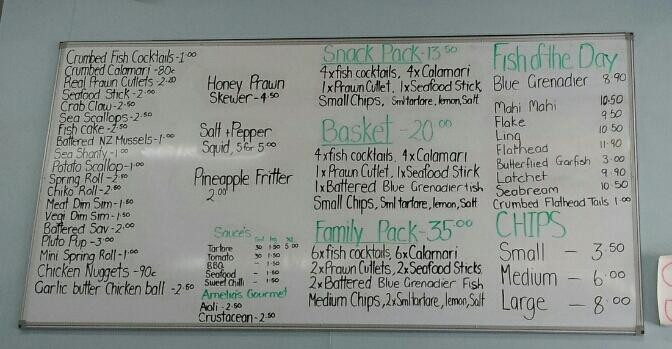 Crumbed Fish Cocktails - 1.00
Crumbed Calamari - 80c
Real Prawn Cutlets - 2.20
Seafood Stick - 2.00
Crab Claw - 2.50
Sea Scallops - 2.50
Fish Cake - 2.50
Battered NZ Mussels - 1.00
Sea Shanty - 1.00
Potato Scallop - 1.00
Spring Roll - 2.50
Chiko Roll - 2.80
Meat Dim Sim - 1.50
Vegi Dim Sim - 1.50
Battered Sav - 2.00
Pluto Pup - 3.00
Mini Spring Roll - 1.00
Chicken Nuggets - 90c
Garlic butter Chicken ball - 2.50
Honey Prawn
Skewer - 4.50
Salt + Pepper
Squid, 5 for 5.00
Pineapple Fritter
2.00
Sauce's
Tartare 30 1.50 5.00
Tomato 30 1.50
BBQ - 1.50
Seafood - 1.50
Sweet Chilli - 1.50
Amelia's Gourmet
Aoli - 2.50
Crustacean - 2.50
Snack Pack - 13.50
4 x fish cocktails, 4 x Calamari
1 x Prawn Cutlet, 1 x Seafood Stick
Small Chips, Sml tartare, lemon, Salt
Basket - 20.00
4 x fish cocktails, 4 x Calamari
1 x Prawn Cutlet, 1 x Seafood Stick
1 x Battered Blue Grenadier fish
Small Chips, Sml tartare, lemon, Salt
Family Pack - 35.00
6 x fish cocktails, 6 x Calamari
2 x Prawn Cutlets, 2 x Seafood Sticks
2 x Battered Blue Grenadier Fish
Medium Chips, 2 x Sml tartare, lemon, Salt
Fish of the Day
Blue Grenadier 8.90
Mahi Mahi 10.50
Flake 9.50
Ling 10.50
Flathead 11.90
Butterflied Garfish 3.00
Latchet 9.90
Seabream 10.50
Crumbed Flathead Tails 1.00
CHIPS
Small - 3.50
Medium - 6.00
Large - 8.00